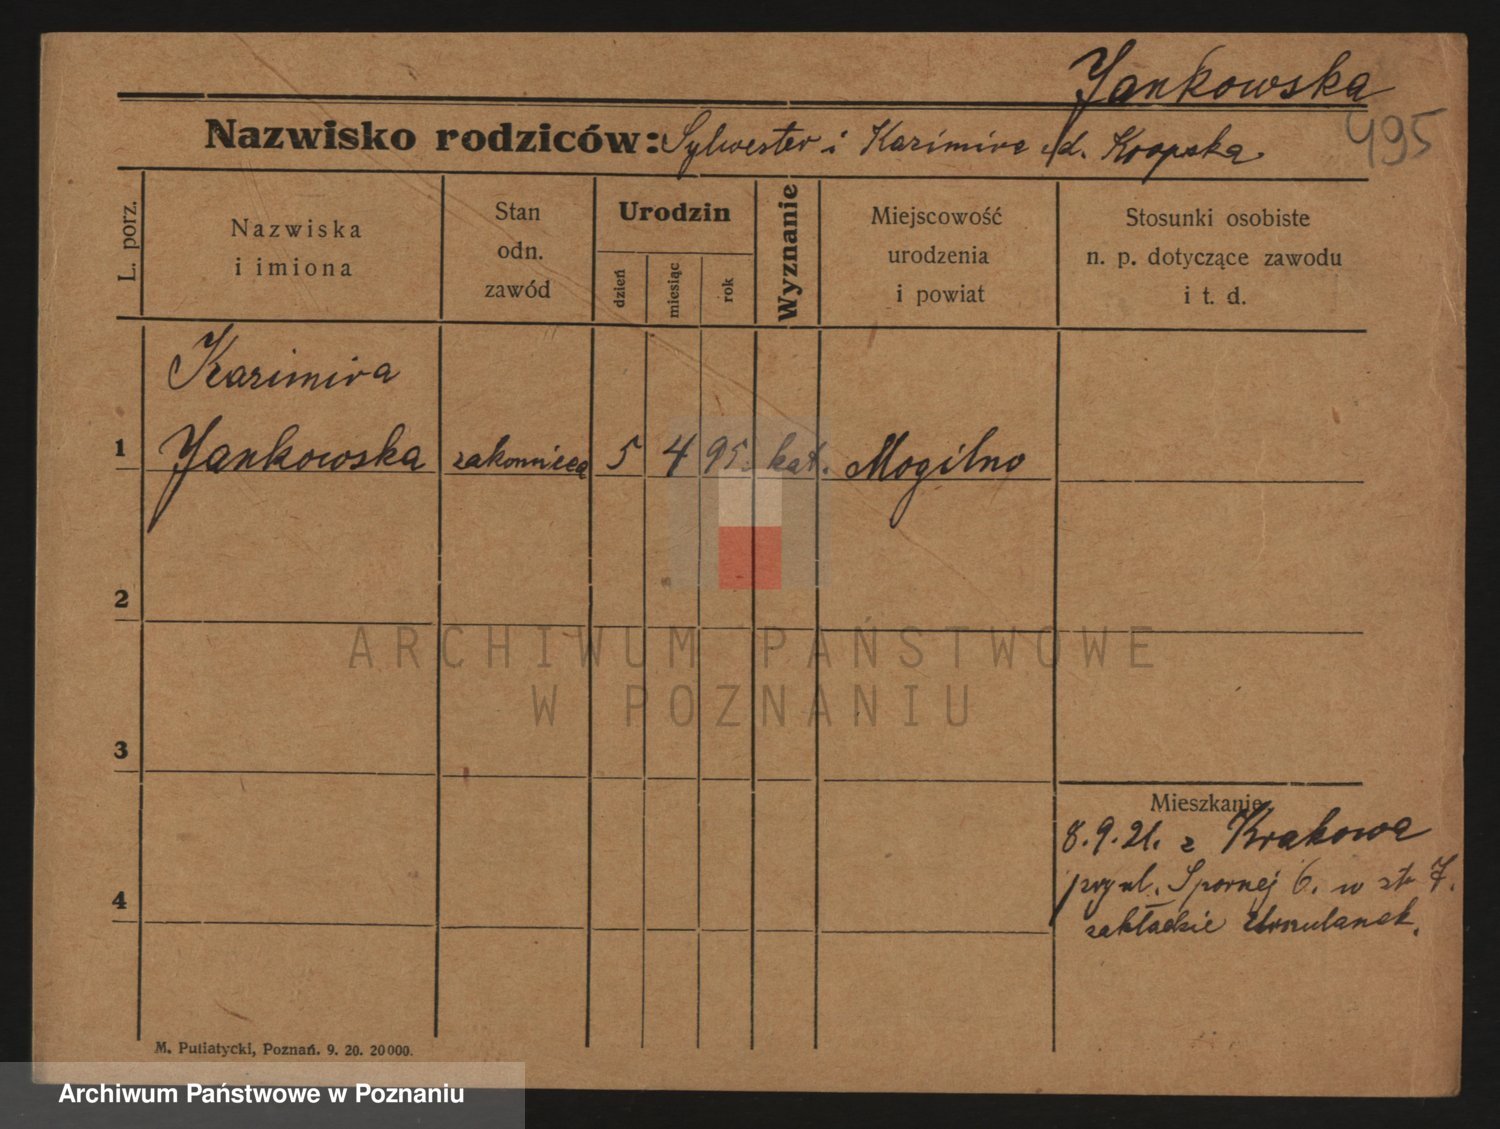 Jankowska
495
Nazwisko rodziców: Sylwester i Kazimira d.
L. porz.
Nazwiska
i imiona
Stan
odn.
zawód
Urodzin
dzień
miesiąc
rok
Wyznanie
Miejscowość
urodzenia
i powiat
Stosunki osobiste
n. p. dotyczące zawodu
i t. d.
Kazimira
1 Jankowska zakonnica 5 4 95. kat. Mogilno
2
ARCHIWUM PAŃSTWOWE
W POZNANIU
3
Mieszkanie
8.9.21. z Krakowa
przy ul. Spornej 6. w
4
zakładzie Urszulanek.
M. Putiatycki, Poznań. 9. 20. 20000.
Archiwum Państwowe w Poznaniu